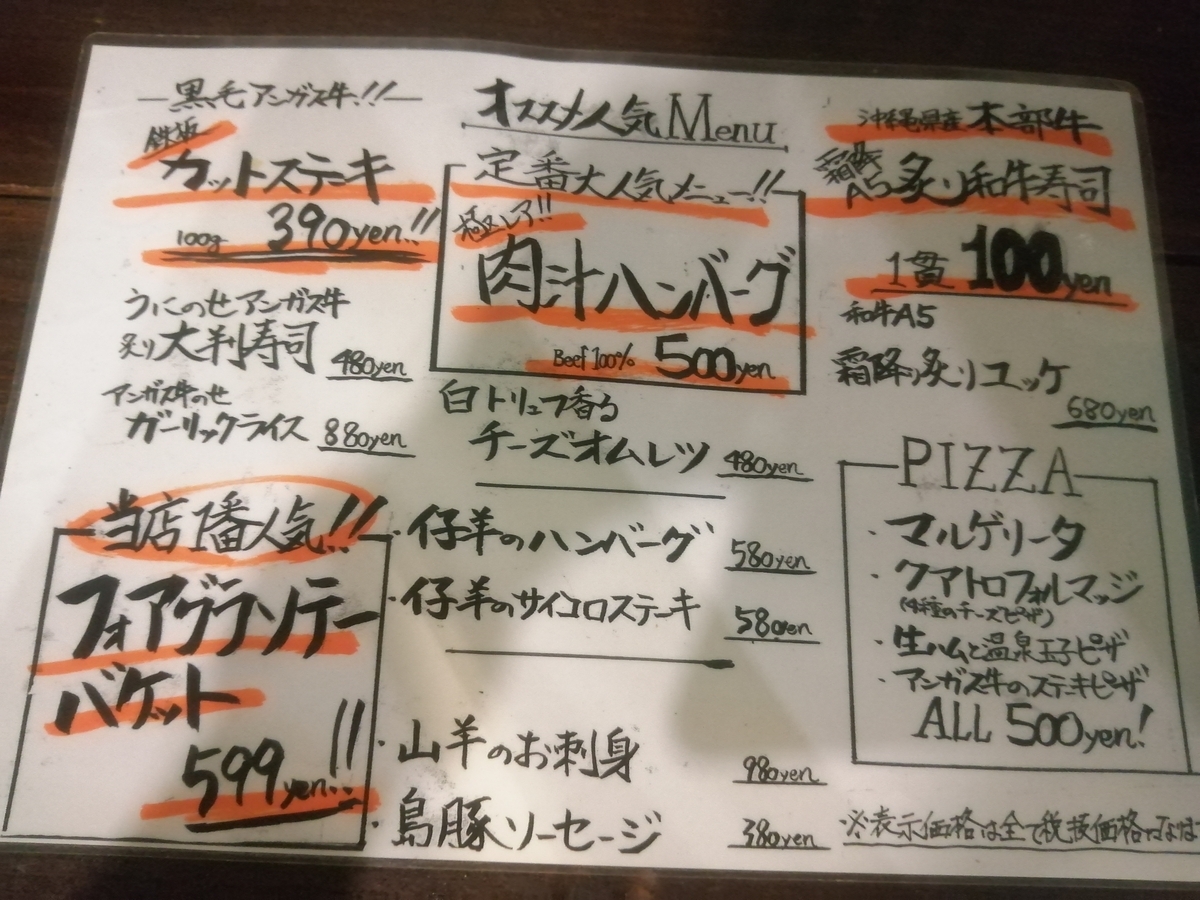 黒毛アンガス牛!!
鉄板
カットステーキ
100g 390yen!!
うにのせアンガス牛
炙り大判寿司 480yen
アンガス牛のせ
ガーリックライス 880yen
当店1番人気!!
フォアグラソテー
バケット
599yen!!
オススメ人気Menu
定番大人気メニュー!!
極レア!!
肉汁ハンバーグ
Beef100% 500yen
白トリュフ香る
チーズオムレツ 480yen
・仔羊のハンバーグ 580yen
・仔羊のサイコロステーキ 580yen
・山羊のお刺身 980yen
・島豚ソーセージ 380yen
沖縄県産本部牛
霜降
A5炙り和牛寿司
1貫100yen
和牛A5
霜降り炙りユッケ
680yen
PIZZA
・マルゲリータ
・クアトロフォルマッジ
(4種のチーズピザ)
・生ハムと温泉玉子ピザ
・アンガス牛のステーキピザ
ALL 500yen!
※表示価格は全て税抜価格